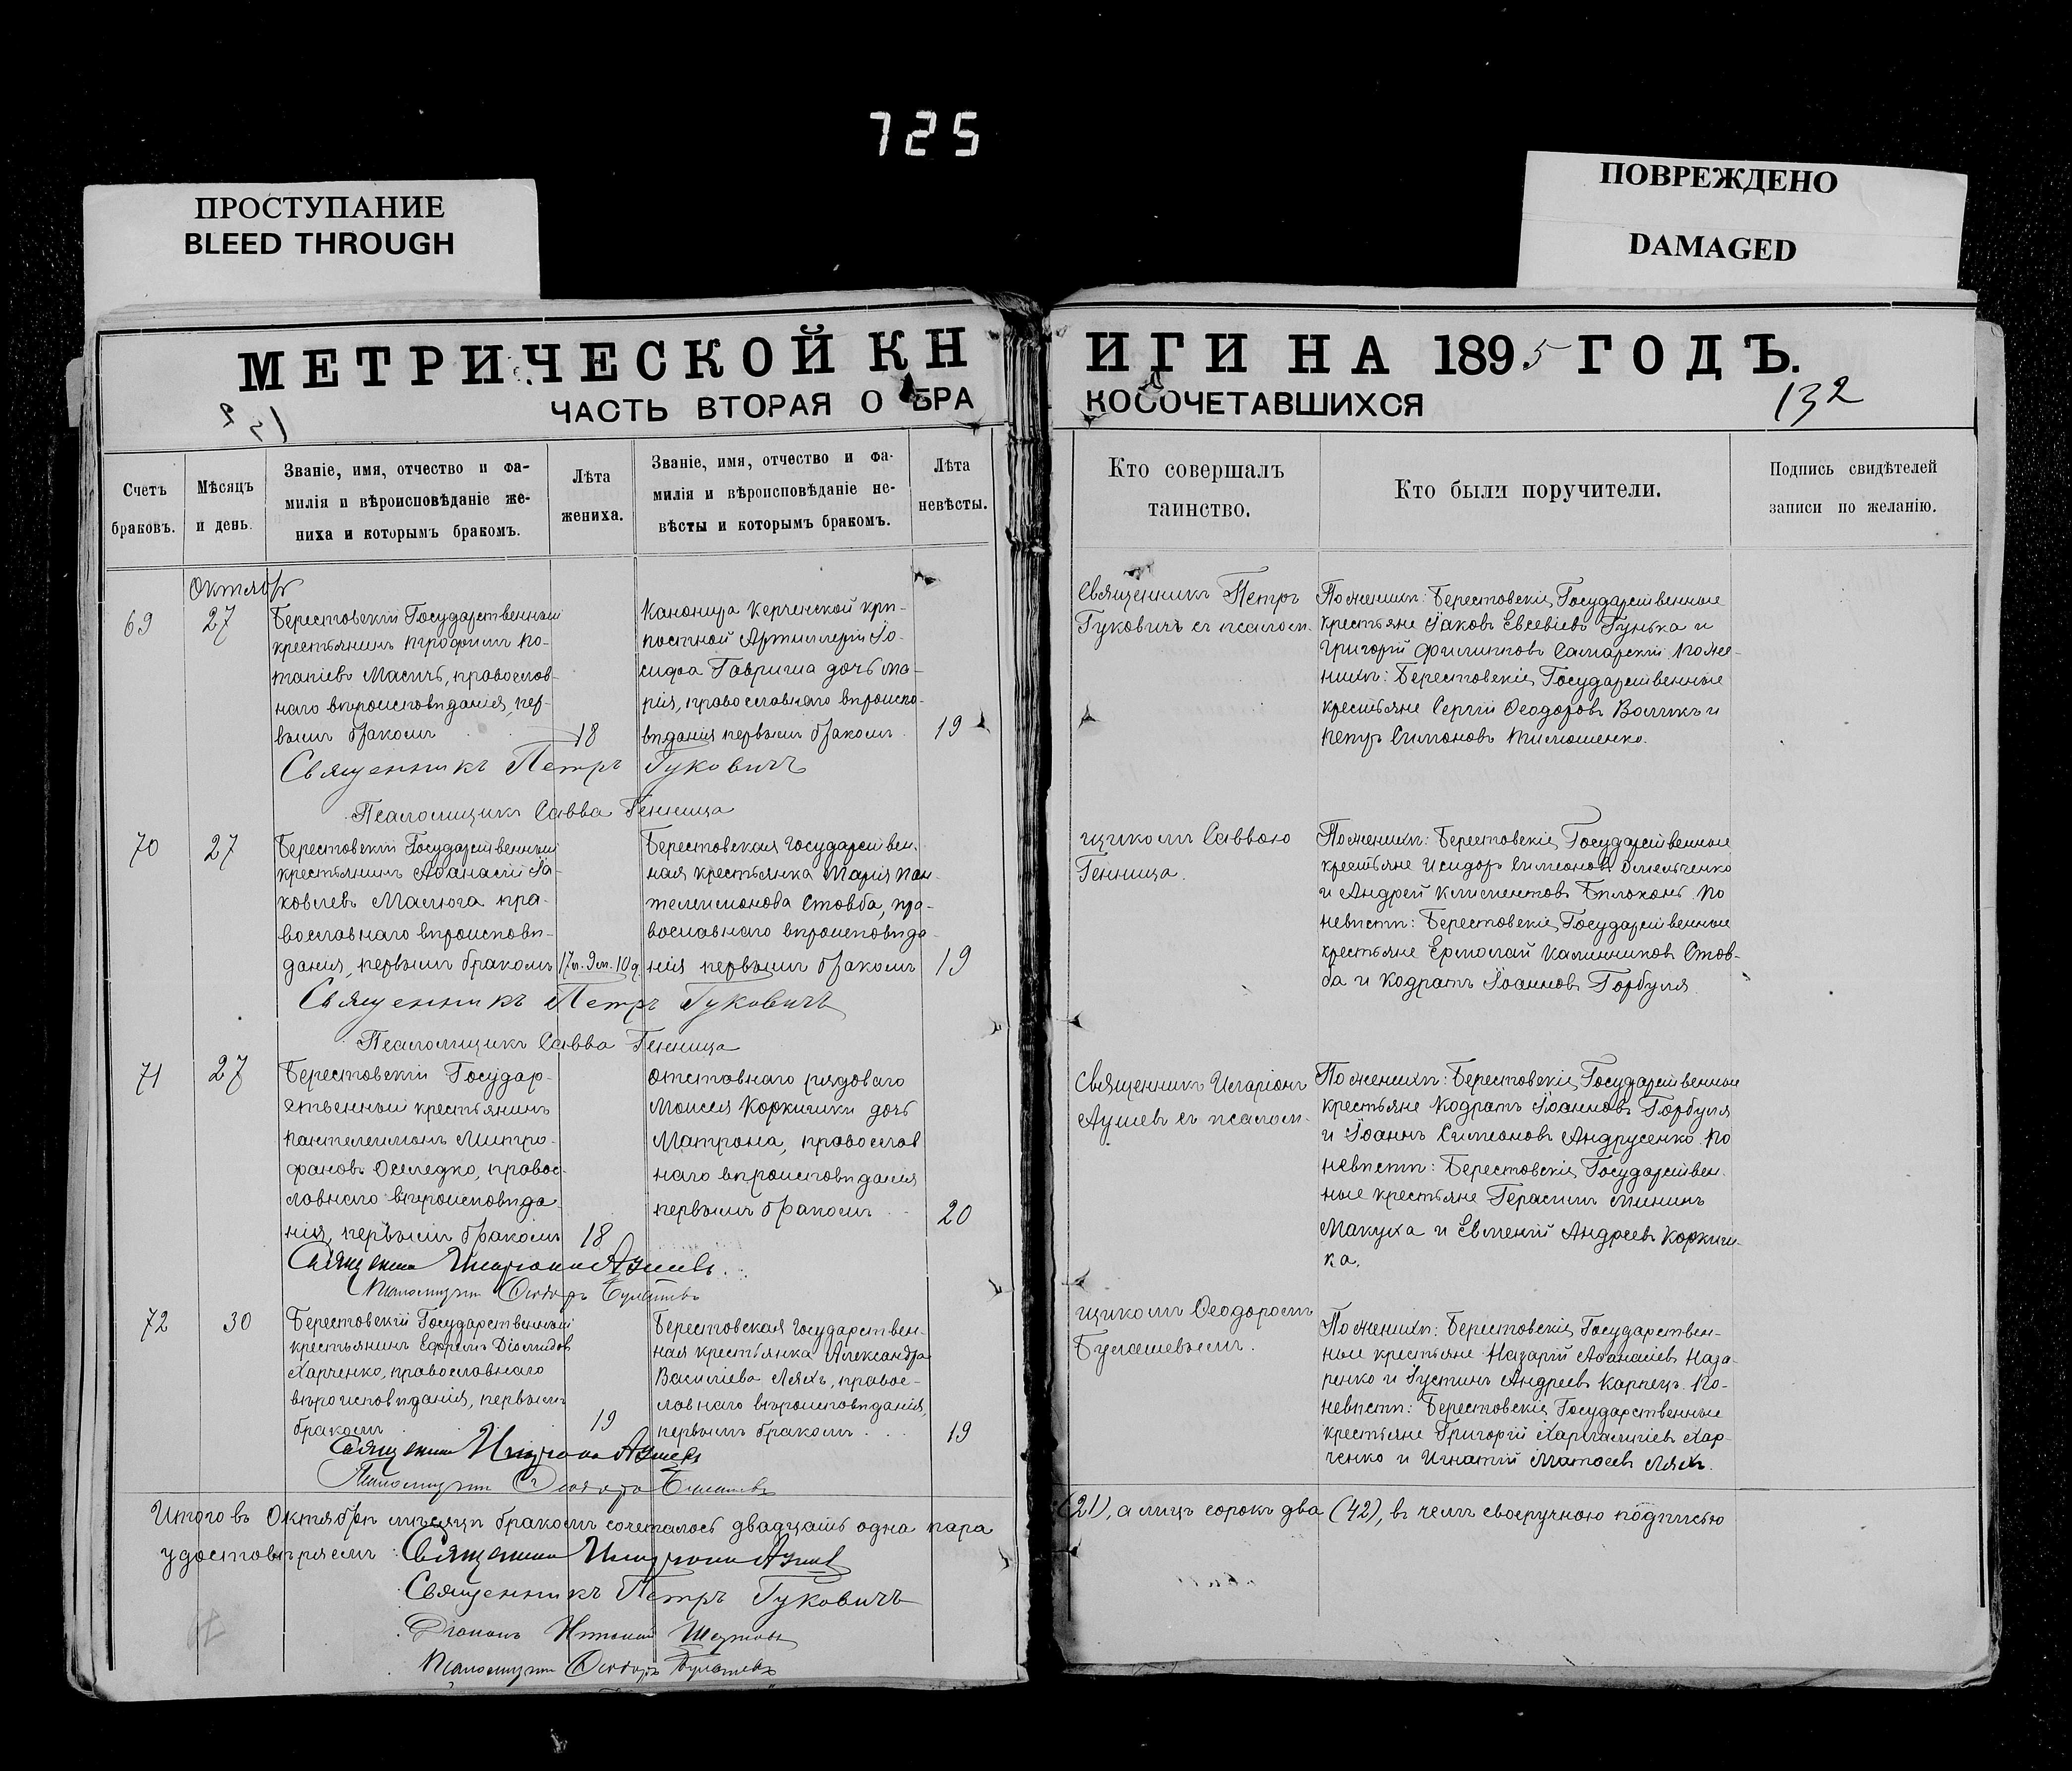 725
ПРОСТУПАНИЕ
BLEED THROUGH
ПОВРЕЖДЕНО
DAMAGED
МЕТРИЧЕСКОЙ КНИГИ НА 1895 ГОДЪ.
ЧАСТЬ ВТОРАЯ О БРАКОСОЧЕТАВШИХСЯ
132
Счетъ
браковъ.
Мѣсяцъ
и день.
Званіе, имя, отчество и фа-
милія и вѣроисповѣданіе же-
ниха и которымъ бракомъ.
Лѣта
жениха.
Званіе, имя, отчество и фа-
милія и вѣроисповѣданіе не-
вѣсты и которымъ бракомъ.
Лѣта
невѣсты.
Кто совершалъ
таинство.
Кто были поручители.
Подпись свидѣтелей
записи по желанію.
Октябрь
69
27
Берестовскій Государственный
крестьянинъ Трофимъ По-
тапіевъ Масичъ, православ-
наго вѣроисповѣданія, пер-
вымъ бракомъ
18
Канонира Керченской крѣ-
постной Артиллеріи Іо-
сифа Гавриша дочь Ма-
рія, православнаго вѣроиспо-
вѣданія первымъ бракомъ
19
Священникъ Петръ
Гуковичъ съ псалом-
По женихѣ: Берестовскіе Государственные
крестьяне Іаковъ Евсевіевъ Гунька и
Григорій Филипповъ Самарскій. По же-
нихѣ: Берестовскіе Государственные
крестьяне Сергій Ѳеодоровъ Волликъ и
Петръ Симоновъ Тимошенко.
Священникъ Петръ Гуковичъ
Псаломщикъ Савва Генница
70
27
Берестовскій Государственный
крестьянинъ Аѳанасій Іа-
ковлевъ Малюга пра-
вославнаго вѣроисповѣ-
данія, первымъ бракомъ
17л. 9м. 10д.
Берестовская Государствен-
ная крестьянка Марія Пан-
телеимонова Стовба, пра-
вославнаго вѣроисповѣда-
нія первымъ бракомъ
19
щикомъ Саввою
Генница.
По женихѣ: Берестовскіе Государственные
крестьяне Исидоръ Симеоновъ Омельченко
и Андрей Климентовъ Бѣлоконь. По
невѣстѣ: Берестовскіе Государственные
крестьяне Ермолай Калинниковъ Стов-
ба и Кодратъ Іоанновъ Горбуля.
Священникъ Петръ Гуковичъ
Псаломщикъ Савва Генница
71
27
Берестовскій Государ-
ственный крестьянинъ
Пантелеимонъ Митро-
фановъ Оселедко, правос-
лавнаго вѣроисповѣда-
нія, первымъ бракомъ
18
Отставнаго рядоваго
Моисея Коркишки дочь
Матрона, православ
наго вѣроисповѣданія
первымъ бракомъ
20
Священникъ Иларіонъ
Аушевъ съ псалом-
По женихѣ: Берестовскіе Государственные
крестьяне Кодратъ Іоанновъ Горбуля
и Іоаннъ Симеоновъ Андрусенко. По
невѣстѣ: Берестовскіе Государствен-
ные крестьяне Герасимъ Мининъ
Макуха и Евменій Андреевъ Коркиш-
ка.
Священникъ Иларіонъ Аушевъ.
Псаломщикъ Ѳеодоръ Булашевъ
72
30
Берестовскій Государственный
крестьянинъ Ефремъ Діомидовъ
Харченко, православнаго
вѣроисповѣданія, первымъ
бракомъ
19
Берестовская Государствен-
ная крестьянка Александра
Василіева Ляхъ, правос-
лавнаго вѣроисповѣданія,
первымъ бракомъ
19
щикомъ Ѳеодоромъ
Булашевымъ.
По женихѣ: Берестовскіе Государствен-
ные крестьяне Назарій Аѳанасіевъ Наза-
ренко и Іустинъ Андреевъ Карпецъ. По-
невѣстѣ: Берестовскіе Государственные
крестьяне Григорій Харлампіевъ Хар-
ченко и Игнатій Матѳеевъ Ляхъ.
Священникъ Иларіонъ Аушевъ
Псаломщикъ Ѳеодоръ Булашевъ
Итого въ Октябрѣ мѣсяцѣ бракомъ сочеталось двадцать одна пара (21), а лицъ сорокъ два (42), въ чемъ своеручною подписью
удостовѣряемъ: Священникъ Иларіонъ Аушевъ
Священникъ Петръ Гуковичъ
Діаконъ
Псаломщикъ Ѳеодоръ Булашевъ